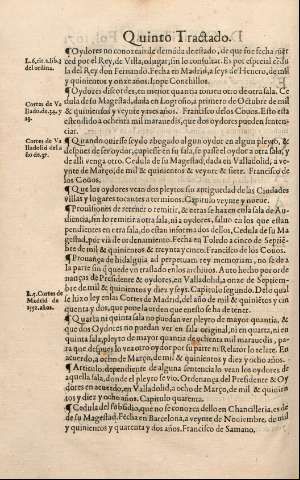 Quinto Tractado.
¶ Oydores no conozcan de
ced por el Rey, de Villa, o lugar, sin lo consultar. Es por especial cedu
la del Rey don Fernando. Fecha en Madrid, a seys de Henero, de mil
y quinientos y onze años. Lope Conchillos.
¶ Oydores discordes, en menor quantia tomen otro de otra sala. Ce
dula de su Magestad, dada en Logroño, a primero de Octubre de mil
& quinientos y Francisco delos Couos. Esto esta
estendido a ochenta mil marauedis, que dos oydores puedan senten
ciar.
¶ Quando ouiesse seydo abogado algun oydor en algun pleyto, &
despues de ser oydor, cupiesse en su sala, se passe el oydor a otra sala, y
de alli venga otro. Cedula de su Magestad, dada en Valladolid, a ve
ynte de Março, de mil & quinientos & veynte & siete. Francisco de
los Couos.
¶ Que los oydores vean dos pleytos sin antiguedad de las Ciudades
villas y logares tocantes a terminos. Capitulo veynte y nueue.
¶ Prouisiones de retener o remitir, & otras se hazen en la sala de Au-
diencia, sin lo remitir a otra sala, ni a oydores, saluo en los que estan
pendientes en otra sala, do estan informados dellos, Cedula de su Ma
gestad, por via de ordenamiento. Fecha en Toledo a cinco de Septiē-
bre de mil & quinientos & veynte y cinco. Francisco de los Couos.
¶ Prouança de hidalguia ad perpetuam rey memoriam, no se de
la parte sin que quede vn traslado en los archiuos. Auto hecho por orde
nanças de Presidente & oydores, en Valladolid, a onze de Septiem-
bre de mil & quinientos y diez y seys. Capitulo segundo. Delo qual
se hizo ley en las Cortes de Madrid, del año de mil & quiniētos & cin
cuenta y dos, que pone la orden que en esso se ha de tener.
¶ Quarta ni quinta sala no puedan ver pleyto de mayor quantia, &
que dos Oydores no puedan ver en sala original, ni en quarta, ni en
quinta sala, pleyto de mayor quantia, que cinquenta mil marauedis, pa-
ra que despues lo vea otro oydor por su parte ni Relator lo relate. En
acuerdo, a ocho de Março, de mil & quinientos y diez y ocho años.
¶ Articulo dependiente de alguna sentencia lo vean los oydores de
aquella sala, donde el pleyto se vio. Ordenança del Presidente & Oy
dores en acuerdo, en Valladolid, a ocho de Março, de mil & quinien-
tos y diez y ocho años. Capitulo quarenta.
¶ Cedula del subsidio, que no se conozca dello en Chancilleria, es de
de su Magestad. Fecha en Barcelona, a veynte de Nouiembre, de mil
y quinientos y quarenta y dos años. Francisco de Samano.
Cortes de Va
Cortes de Va
lladolid del a
L. 7. Cortes de
Madrid de
1552. años.